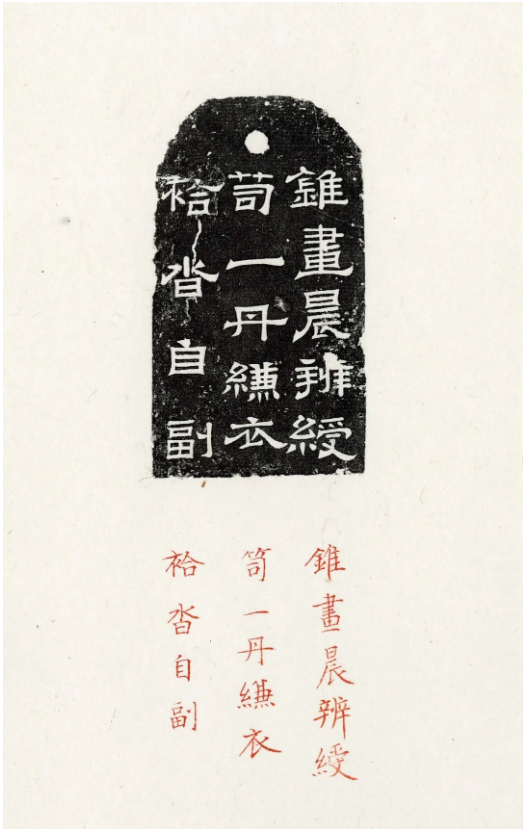 錐畫晨辨綬
笥一丹縑衣
袷沓自副
錐畫晨辨綬
笥一丹縑衣
袷沓自副